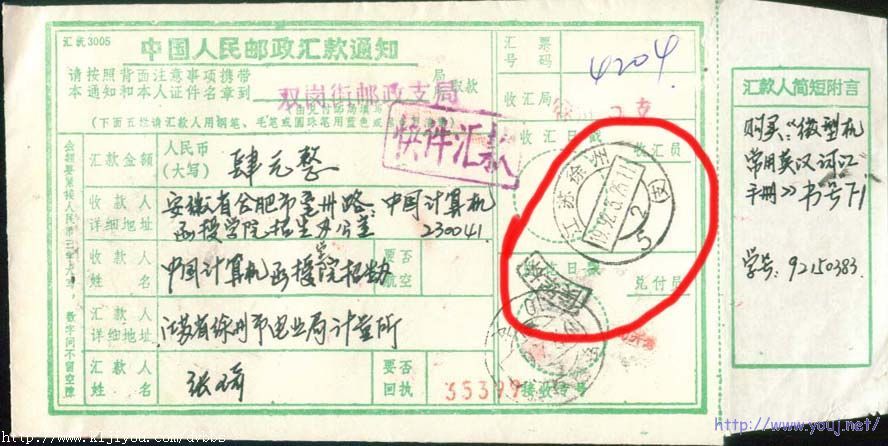 汇统3005
中国人民邮政汇款通知
请按照背面注意事项携带
本通知和本人证件名章到
双岗街邮政支局
局取款
(下面五栏请汇款人用钢笔、毛笔或圆珠笔用蓝色
快件汇款
汇款金额
人民币
(大写)
肆元整
收款人
详细地址
安徽省合肥市亳州路:中国计算机
函授学院招生办公室 230041.
收款人
姓名
中国计算机函授学院招生办
要否
航空
汇款人
详细地址
江苏省徐州市电业局计量所
汇款人
姓名
要否
回执
35399
汇票
号码
4204
收汇局
收汇日戳
收汇员
江苏徐州
5
兑付员
接收号
汇款人简短附言
购买:《微型机
常用英汉词汇
手册》书号71
学号:92150383.
http://www.youj.net/